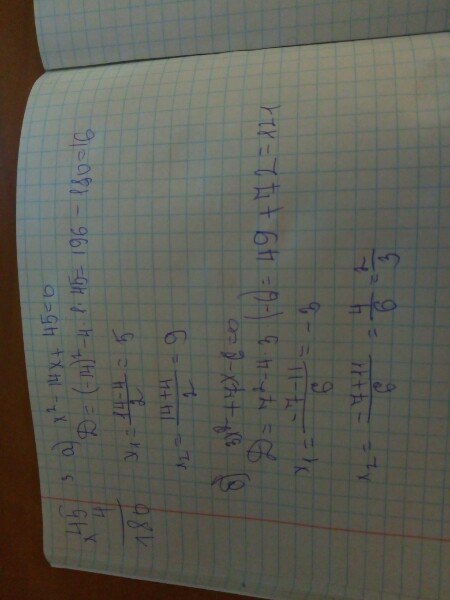 3 а) x² - 14x + 45 = 0
D = (-14)² - 4 · 1 · 45 = 196 - 180 = 16
x₁ = (14-4)/2 = 5
x₂ = (14+4)/2 = 9
x 45
4
180
б) 3x² + 7x - 6 = 0
D = 7² - 4 · 3 (-6) = 49 + 72 = 121
x₁ = (-7-11)/6 = -3
x₂ = (-7+11)/6 = 4/6 = 2/3